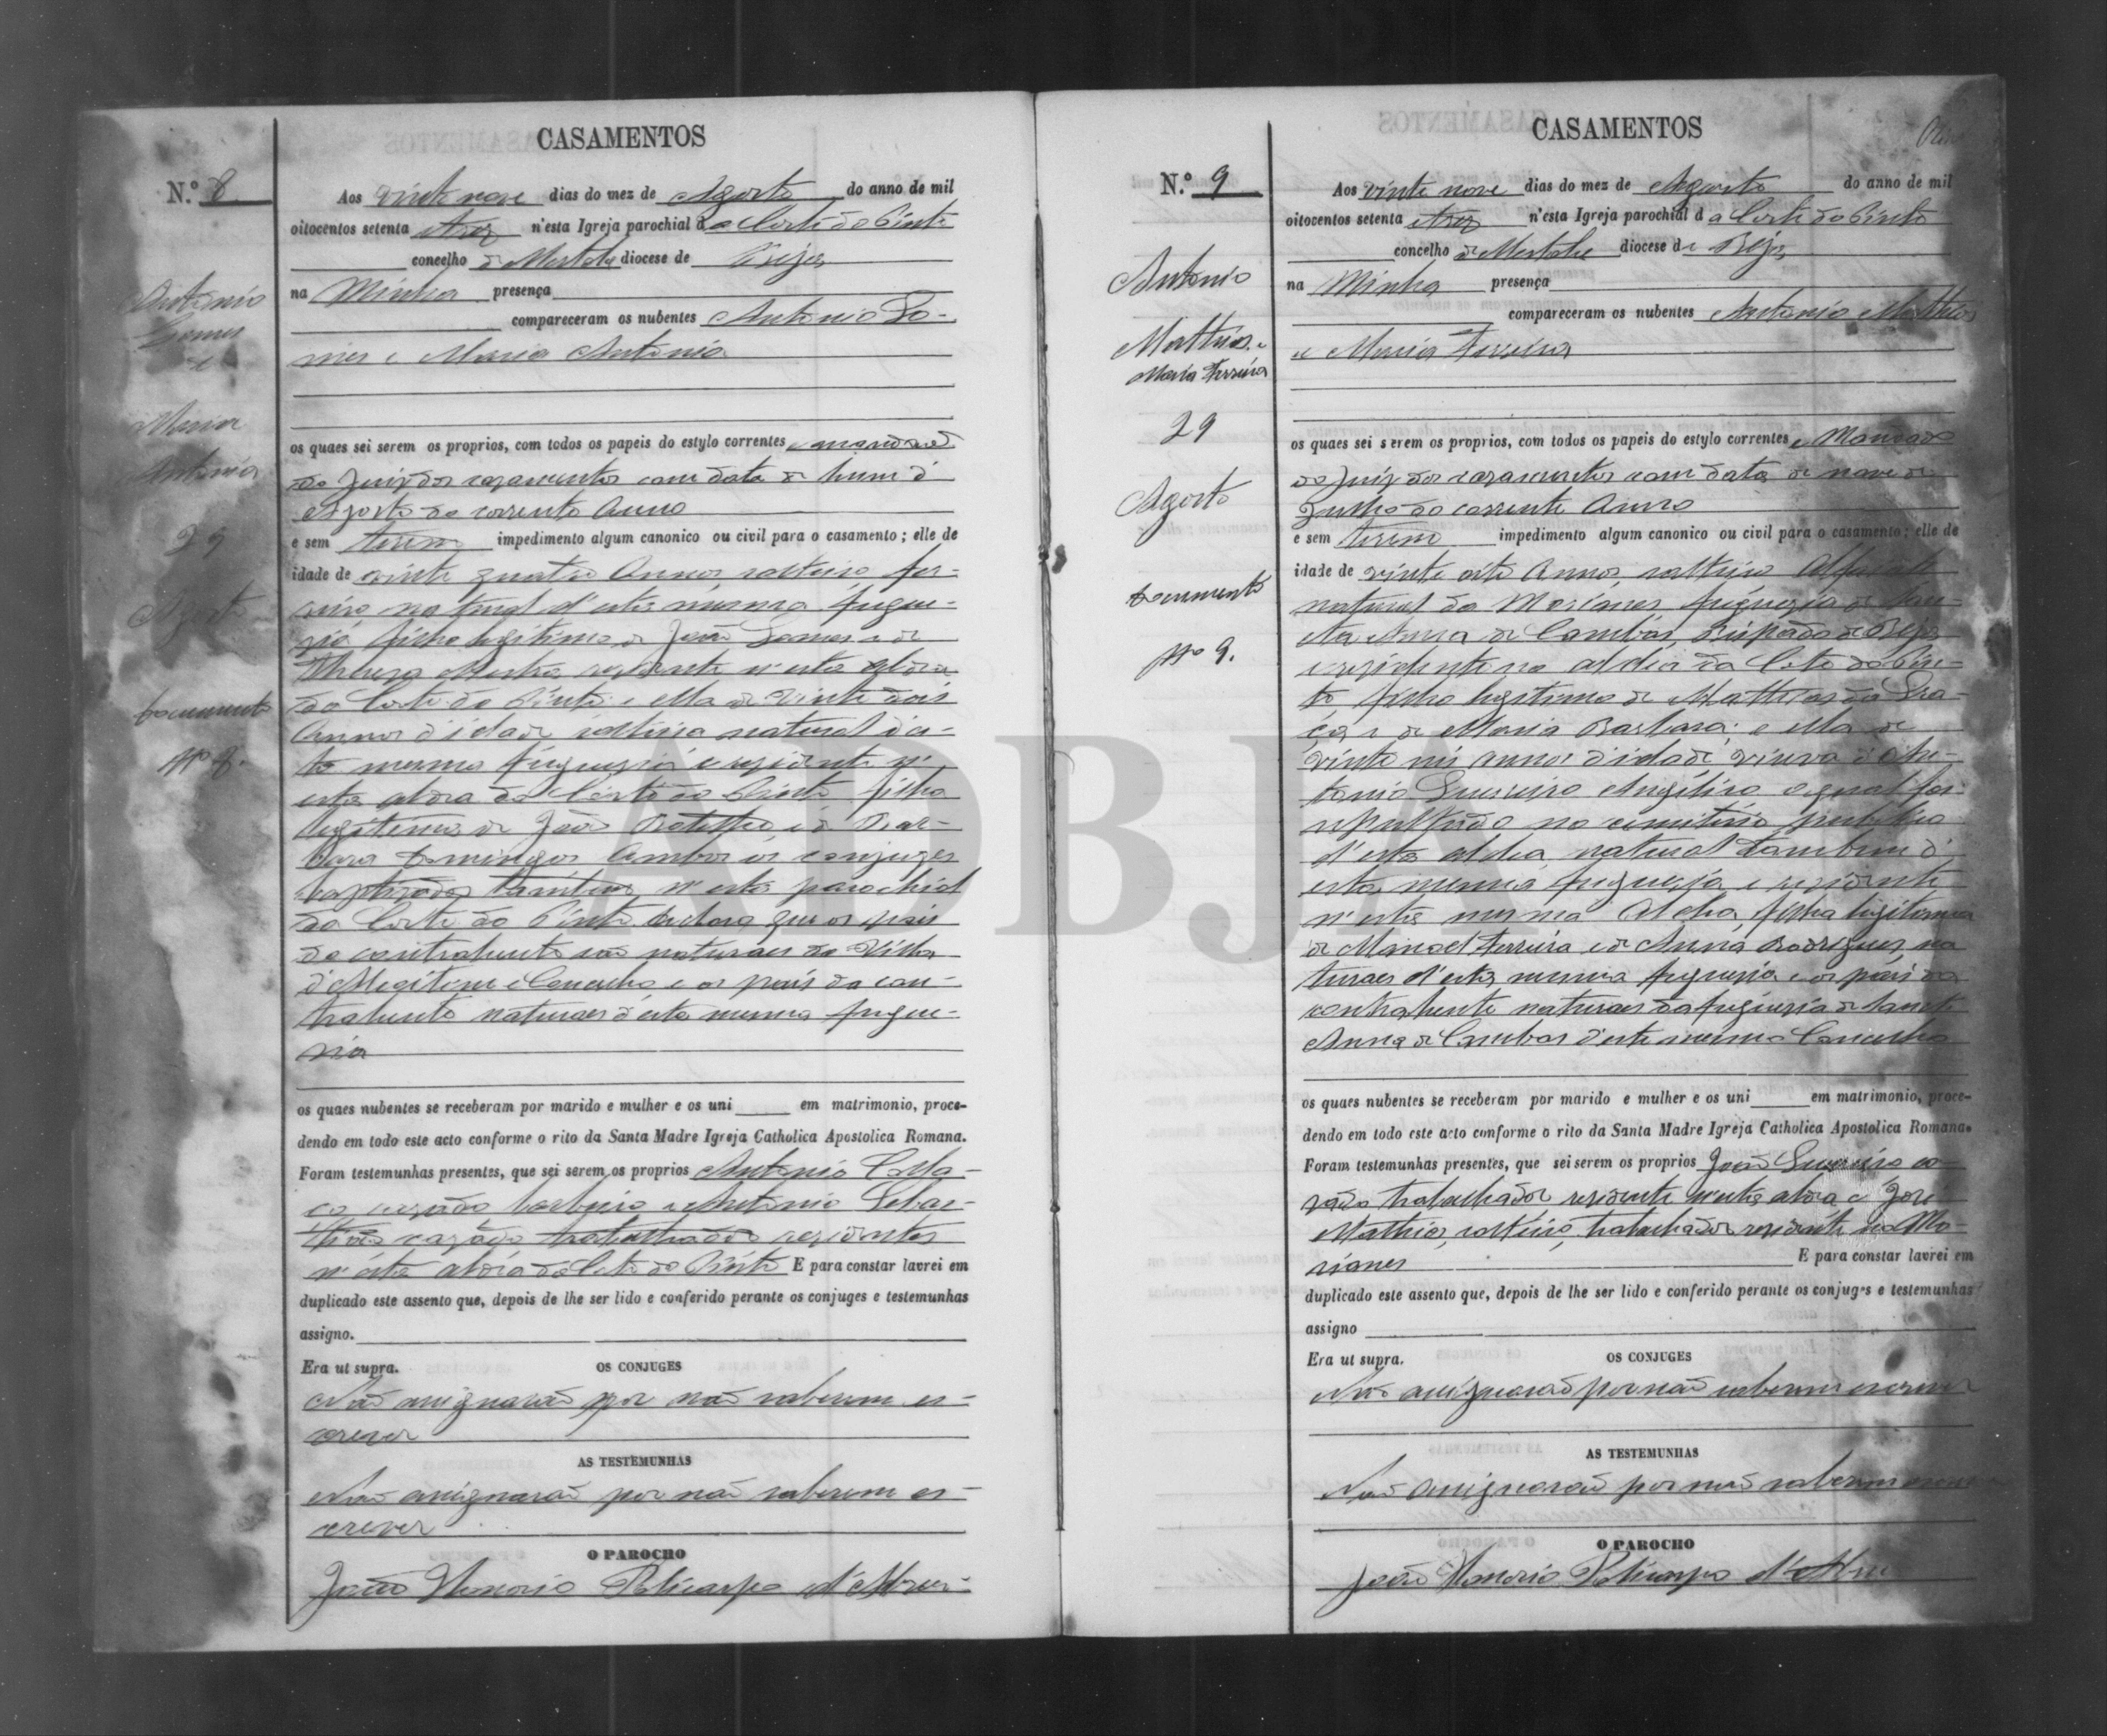 CASAMENTOS
N.º 8
Antonio
Gomes
e
Maria
Antonia
29
Agosto
Documento
Nº 8.
Aos vinte nove dias do mez de Agosto do anno de mil
oitocentos setenta e trez n'esta Igreja parochial da Corte do Pinto
concelho de Mertola diocese de Beja
na Minha presença
compareceram os nubentes Antonio Go-
mes e Maria Antonia
os quaes sei serem os proprios, com todos os papeis do estylo correntes e mandado
do Juiz dos cazamentos com data de hum d'
Agosto do corrente Anno
e sem terem impedimento algum canonico ou civil para o casamento; elle de
idade de vinte quatro Annos, solteiro
natural d'esta mesma fregue-
zia filho legitimo de João Gomes e de
Thereza residente n'esta aldeia
da Corte do Pinto: e ella de vinte dois
Annos d'idade solteira natural d'es-
ta mesma freguezia e rezidente n'
esta aldeia da Corte do Pinto filha
legitima de João e de Bar-
bara Domingos Ambos os conjuges
baptizados n'esta parochial
da Corte do Pinto declaro que os pais
do contrahente são naturaes da Villa
e Concelho e os pais da con-
trahente naturaes d'esta mesma fregue-
zia
os quaes nubentes se receberam por marido e mulher e os uni em matrimonio, proce-
dendo em todo este acto conforme o rito da Santa Madre Igreja Catholica Apostolica Romana.
Foram testemunhas presentes, que sei serem os proprios Antonio
cazado barbeiro e Antonio Sebas-
tião cazado trabalhador rezidentes
n'esta aldeia da Corte do Pinto E para constar lavrei em
duplicado este assento que, depois de lhe ser lido e conferido perante os conjuges e testemunhas
assigno.
Era ut supra.
OS CONJUGES
Não assignarão por não saberem es-
crever
AS TESTEMUNHAS
Não assignarão por não saberem es-
crever
O PAROCHO
João Honorio Policarpo d'Abreu
CASAMENTOS
N.º 9
Antonio
Mathias e
Maria Ferreira
29
Agosto
Documento
Nº 9.
Aos vinte nove dias do mez de Agosto do anno de mil
oitocentos setenta e trez n'esta Igreja parochial da Corte do Pinto
concelho de Mertola diocese de Beja
na Minha presença
compareceram os nubentes Antonio Mathias
e Maria Ferreira
os quaes sei serem os proprios, com todos os papeis do estylo correntes e Mandado
do Juiz dos cazamentos com data de nove de
Julho do corrente Anno
e sem terem impedimento algum canonico ou civil para o casamento; elle de
idade de vinte oito Annos, solteiro
natural da freguezia de San-
ta Anna de Cambas, Bispado de Beja
e rezidente na aldeia da Corte do Pin-
to filho legitimo de Mathias da Gra-
ça e de Maria Barbara; e ella de
vinte annos d'idade viuva d'An-
tonio Guerreiro o qual foi
sepultado no cemiterio publico
d'esta aldeia, natural tambem d'
esta mesma freguezia e rezidente
n'esta mesma Aldeia, filha legitima
de Manoel Ferreira e de Anna Rodrigues, na
turaes d'esta mesma freguezia e os pais do
contrahente naturaes da freguezia de Santa
Anna de Cambas d'este mesmo Concelho
os quaes nubentes se receberam por marido e mulher e os uni em matrimonio, proce-
dendo em todo este acto conforme o rito da Santa Madre Igreja Catholica Apostolica Romana.
Foram testemunhas presentes, que sei serem os proprios João Guerreiro ca-
zado trabalhador rezidente n'esta aldeia e José
Mathias, solteiro, trabalhador rezidente
E para constar lavrei em
duplicado este assento que, depois de lhe ser lido e conferido perante os conjuges e testemunhas
assigno
Era ut supra.
OS CONJUGES
Não assignarão por não saberem escrever
AS TESTEMUNHAS
Não assignarão por não saberem
O PAROCHO
João Honorio Policarpo d'Abreu
ADBJA